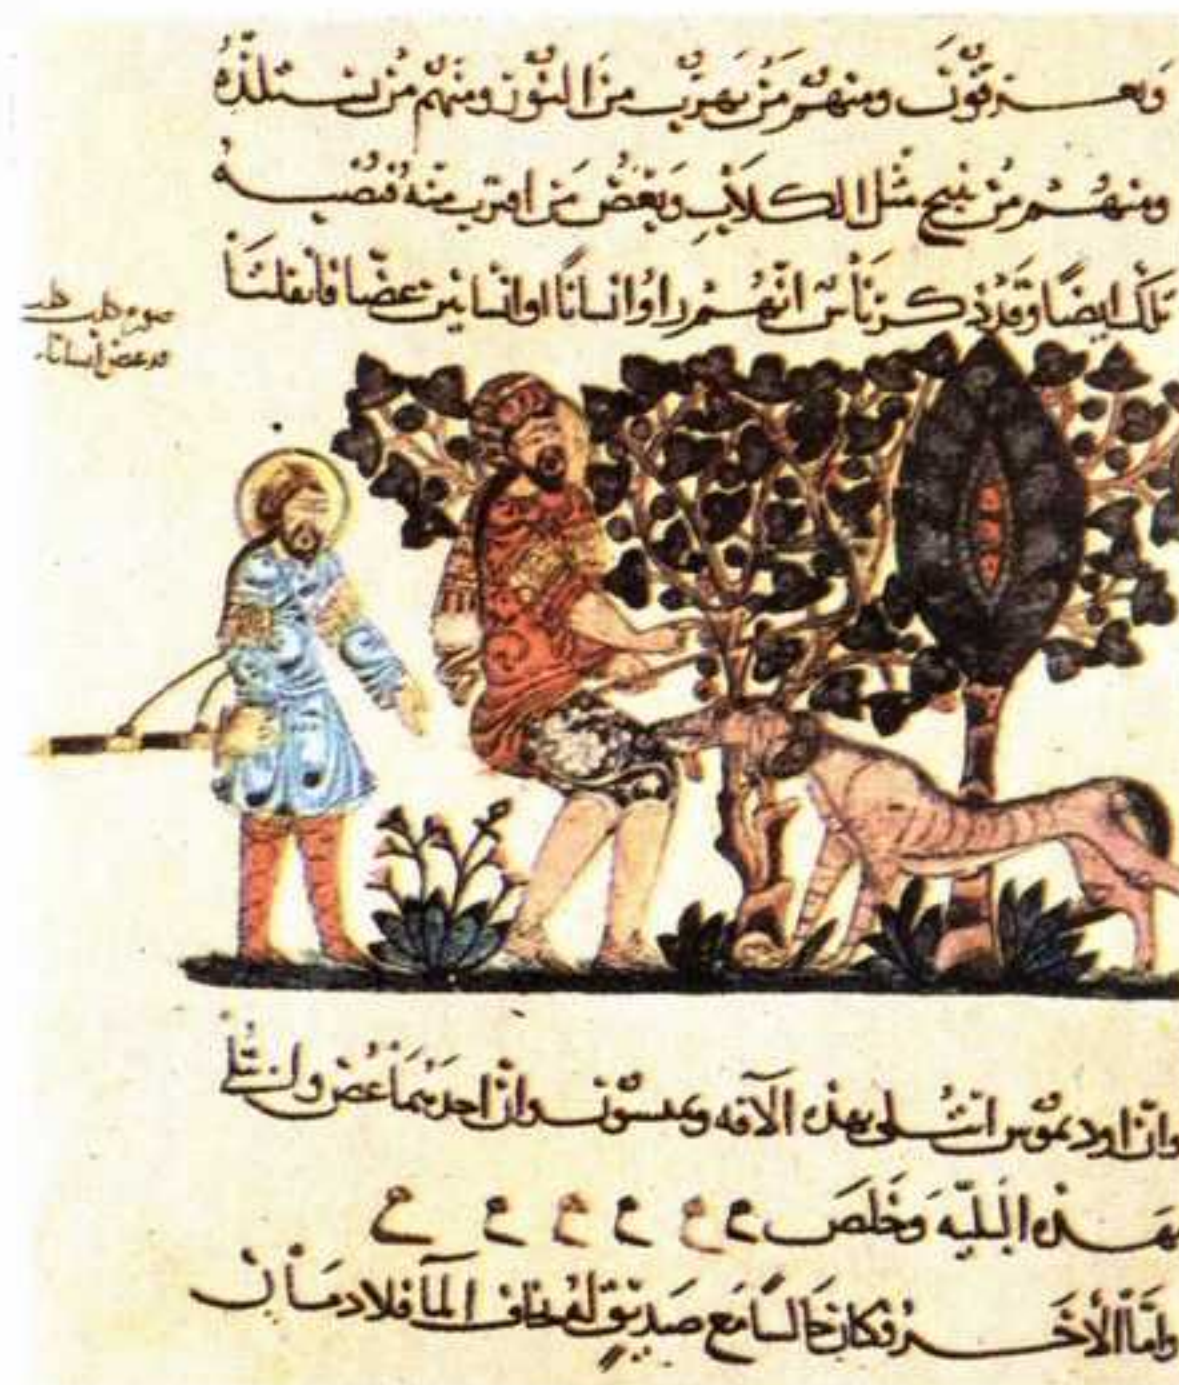 ويعرقون ومنهم من يهرب من النور ومنهم من يستلذه
ومنهم من ينبح مثل الكلاب ويعض من اقترب منه فتصيبه
تلك ايضا وقد ذكر ناس انهم راوا انسانا او انسانين عضا فانفلتا
صورة كلب كلب
قد عض انسانا
وان اوديموس ابتلى بهذه الآفة وان احدهما عض وابتلي
بهذه البلية وخلص
واما الأخر فكان جالسا مع صديق له فخاف الما فلا دما ان